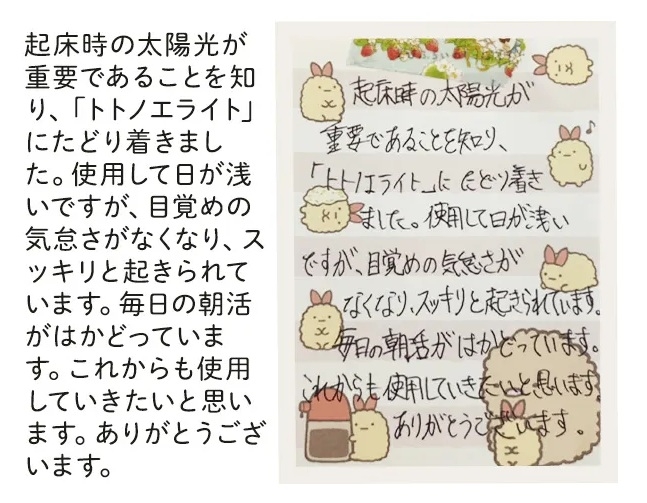 起床時の太陽光が
重要であることを知
り、「トトノエライト」
にたどり着きまし
た。使用して日が浅
いですが、目覚めの
気怠さがなくなり、ス
ッキリと起きられて
います。毎日の朝活
がはかどっていま
す。これからも使用
していきたいと思い
ます。ありがとうござ
います。
起床時の太陽光が
重要であることを知り、
「トトノエライト」にたどり着き
ました。使用して日が浅い
ですが、目覚めの気怠さが
なくなり、スッキリと起きられています。
毎日の朝活がはかどっています。
これからも使用していきたいと思います
ありがとうございます。